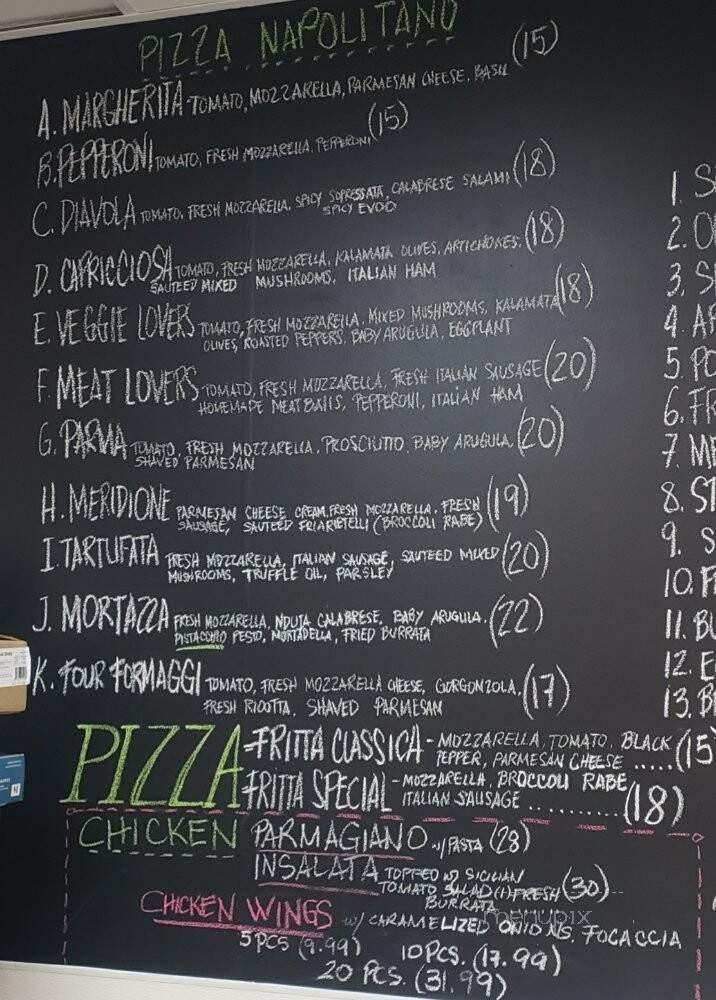 PIZZA NAPOLITANO
A. MARGHERITA - TOMATO, MOZZARELLA, PARMESAN CHEESE, BASIL (15)
B. PEPPERONI TOMATO, FRESH MOZZARELLA, PEPPERONI (15)
C. DIAVOLA TOMATO, FRESH MOZZARELLA, SPICY SOPRESSATA, CALABRESE SALAMI (18)
SPICY EVOO
D. CAPRICCIOSA TOMATO, FRESH MOZZARELLA, KALAMATA OLIVES, ARTICHOKES, (18)
SAUTEED MIXED MUSHROOMS, ITALIAN HAM
E. VEGGIE LOVERS TOMATO, FRESH MOZZARELLA, MIXED MUSHROOMS, KALAMATA (18)
OLIVES, ROASTED PEPPERS, BABY ARUGULA, EGGPLANT
F. MEAT LOVERS TOMATO, FRESH MOZZARELLA, FRESH ITALIAN SAUSAGE (20)
HOMEMADE MEATBALLS, PEPPERONI, ITALIAN HAM
G. PARMA TOMATO, FRESH MOZZARELLA, PROSCIUTTO, BABY ARUGULA, (20)
SHAVED PARMESAN
H. MERIDIONE PARMESAN CHEESE CREAM, FRESH MOZZARELLA, FRESH (19)
SAUSAGE, SAUTEED FRIARIELLI (BROCCOLI RABE)
I. TARTUFATA FRESH MOZZARELLA, ITALIAN SAUSAGE, SAUTEED MIXED (20)
MUSHROOMS, TRUFFLE OIL, PARSLEY
J. MORTAZZA FRESH MOZZARELLA, NDUJA CALABRESE, BABY ARUGULA, (22)
PISTACCHIO PESTO, MORTADELLA, FRIED BURRATA
K. FOUR FORMAGGI TOMATO, FRESH MOZZARELLA CHEESE, GORGONZOLA, (17)
FRESH RICOTTA, SHAVED PARMESAN
PIZZA FRITTA CLASSICA - MOZZARELLA, TOMATO, BLACK
PEPPER, PARMESAN CHEESE ..... (15)
FRITTA SPECIAL - MOZZARELLA, BROCCOLI RABE,
ITALIAN SAUSAGE .......... (18)
CHICKEN PARMAGIANO w/ PASTA (28)
INSALATA TOPPED w/ SICILIAN
TOMATO SALAD (1) FRESH (30)
BURRATA
CHICKEN WINGS w/ CARAMELIZED ONIONS, FOCACCIA
5 PCS (9.99) 10 PCS. (17.99)
20 PCS. (31.99)
menupix
1. S
2. O
3. S
4. A
5. PO
6. FR
7. ME
8. ST
9. S
10. F
11. BU
12. E
13. B